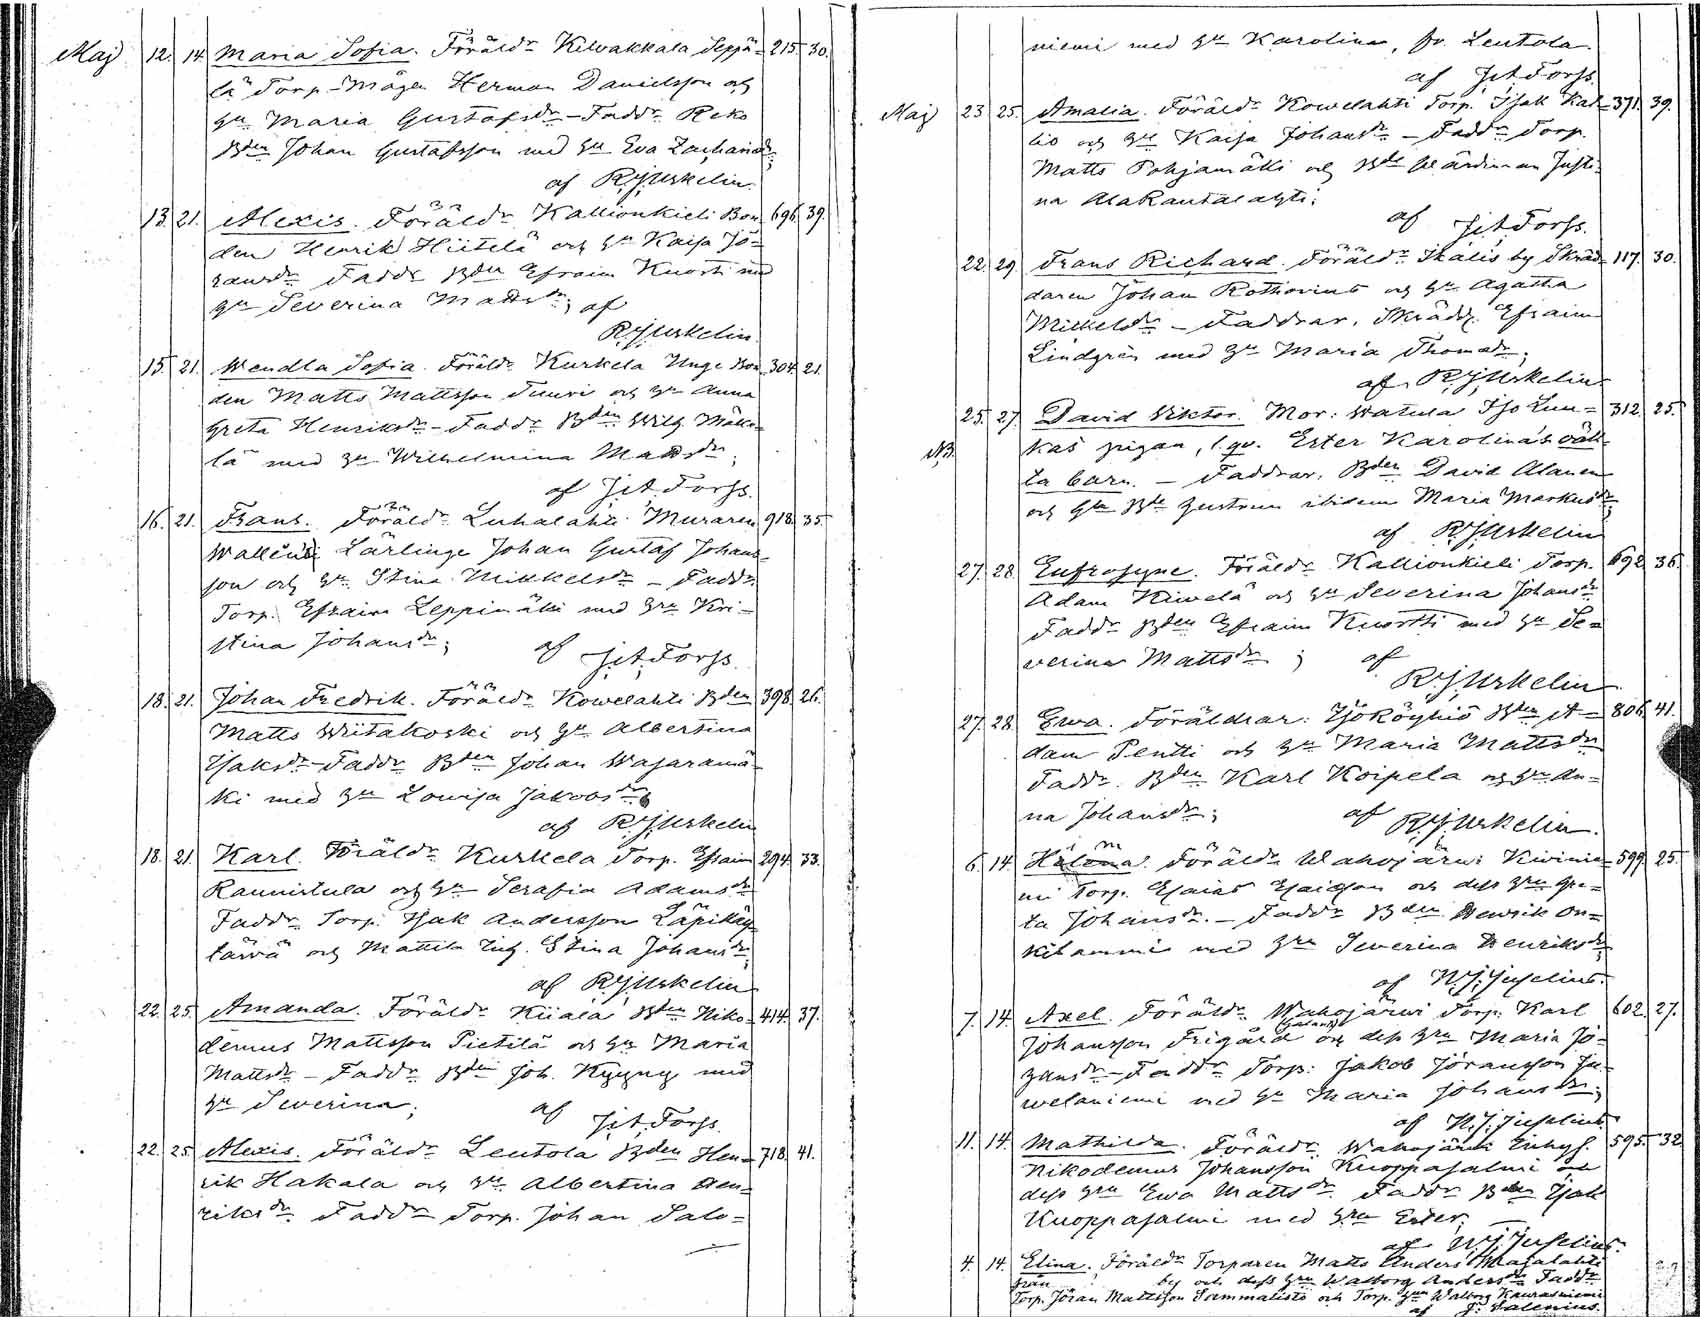 Maj 12. 14. Maria Sofia. Föräldr Kilvakkala Seppä- 215. 30.
lä Torp-Mågen Herman Danielsson och
hu Maria Gustafsdr - Faddr Reko
Bden Johan Gustafsson med hu Eva Zachariadr;
af R.J. Urkelin.
13. 21. Alexis. Föräldr Kallionkieli Bon- 696. 39.
den Henrik Hiitelä och hu Kaisa Jö-
ransdr Faddr Bden Efraim Kuortti med
hu Severina Mattsdr; af
R.J. Urkelin.
15. 21. Wendla Sofia. Föräldr Kurkela Unge Bon- 304. 21.
den Matts Mattsson Tuuri och hu Anna
Greta Henriksdr - Faddr Bden Wilh Mäke-
lä med hu Wilhelmina Mattsdr;
af J.A. Forss.
16. 21. Frans. Föräldr Luhalahti Muraren 918. 35.
Lärlinge Johan Gustaf Johans-
son och hu Stina Mikkelsdr - Faddr
Torp. Efraim Leppimäki med hu Kri-
stina Johansdr; af
J.A. Forss.
18. 21. Johan Fredrik. Föräldr Kowelahti Bden 398. 26.
Matts Wiitakoski och hu Albertina
Isaksdr - Faddr Bden Johan Wajaramä-
ki med hu Lowisa Jakobsdr;
af R.J. Urkelin
18. 21. Karl. Föräldr Kurkela Torp. Efraim 294. 33.
Raunistula och hu Serafia Adamsdr
Faddr Torp. Isak Andersson Läpikäy-
tävä och Mattila Stina Johansdr;
af R.J. Urkelin
22. 25. Amanda. Föräldr Kiiala Bden Niko- 414. 37.
demus Mattsson Pietilä och hu Maria
Mattsdr - Faddr Bden Joh. Kyyny med
hu Severina; af
J.A. Forss.
22. 25. Alexis. Föräldr Leutola Bden Hen- 718. 41.
rik Hakala och hu Albertina Hen-
riksdr Faddr Torp. Johan Salo-
niemi med hu Karolina, fr. Leutola.
af J.A. Forss.
Maj 23. 25. Amalia. Föräldr Kowelahti Torp. Isak Kal- 371. 39.
lio och hu Kaisa Johansdr - Faddr Torp.
Matts Pohjamäki och Bde Justi-
na Alakantalahti;
af J.A. Forss.
22. 29. Frans Richard. Föräldr Ikalis by Skräd- 117. 30.
daren Johan Rothovius och hu Agatha
Mikkelsdr - Faddrar, Skrädd. Efraim
Lindgrén med hu Maria Thomasdr;
af R.J. Urkelin
25. 27. David Viktor. Mor: Watula Iso Luu- 312. 25.
NB. kas pigan, l. qv. Ester Karolina's oäk-
ta barn. - Faddrar, Bden David Alanen
och ibidem Maria Markusdr;
af R.J. Urkelin
27. 28. Eufrosyne. Föräldr Kallionkieli Torp. 692. 36.
Adam Kiwelä och hu Severina Johansdr
Faddr Bden Efraim Kuortti med hu Se-
verina Mattsdr; af
R.J. Urkelin
27. 28. Ewa. Föräldrar: Jyököyhiö Bden A- 806. 41.
dam Pentti och hu Maria Mattsdr
Faddr Bden Karl Koipela och hu An-
na Johansdr; af
R.J. Urkelin.
6. 14. Föräldr Wahojärwi Kivinie- 599. 25.
mi Torp. Esaias Esaiasson och dess hru Gre-
ta Johansdr. - Faddr Bden Henrik On-
kilammi med hru Severina Henriksdr;
af W.J. Juselius.
7. 14. Axel. Föräldr Wahojärwi Torp. Karl 602. 27.
Johansson Frigård och dess hru Maria Jö-
ransdr - Faddr Torp: Jakob Jöransson Ju-
welaniemi med hu Maria Johansdr;
af W.J. Juselius
11. 14. Mathilda. Föräldr Wahojärwi Inhys. 595. 32
Nikodemus Johansson Kuoppasalmi och
dess hru Ewa Mattsdr Faddr Bden Isak
Kuoppasalmi med hru Ester;
af W.J. Juselius.
4. 14. Elina. Föräldr Torparen Matts Anders Majalahti
från by och dess hru Walborg Andersdr Faddr
Torp. Jöran Mattsson Sammalisto och Torp. hru Walborg Kaurasniemi
af J. Salenius.